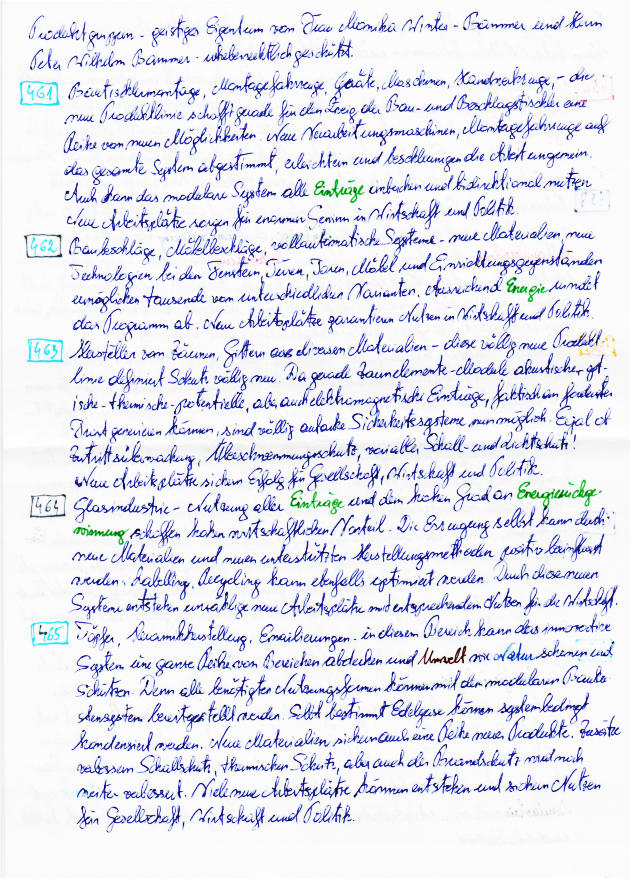 Produktgruppen - geistiges Eigentum von Frau Monika Winter - Bammer und Herrn
Peter Wilhelm Bammer - urheberrechtlich geschützt.
461 Bautischlermontage, Montagefahrzeuge, Geräte, Maschinen, Handwerkzeuge, - die
neue Produktlinie schafft gerade für den Zweig der Bau- und Beschlagstischler eine
Reihe von neuen Möglichkeiten. Neue Verarbeitungsmaschinen, Montagefahrzeuge auf
das gesamte System abgestimmt, erleichtern und beschleunigen die Arbeit ungemein.
Auch kann das modulare System alle Einträge einbeziehen und bidirektional nutzen
Neue Arbeitsplätze sorgen für enormen Gewinn in Wirtschaft und Politik.
462 Baubeschläge, Möbelbeschläge, vollautomatische Systeme - neue Materialien, neue
Technologien bei den Fenstern, Türen, Toren, Möbel und Einrichtungsgegenständen
ermöglichen tausende von unterschiedlichen Varianten. Ausreichend Energie rundet
das Programm ab. Neue Arbeitsplätze garantieren Nutzen in Wirtschaft und Politik.
463 Hersteller von Zäunen, Gittern aus diversen Materialien - diese völlig neue Produkt-
linie definiert Schutz völlig neu. Da gerade Zaunelemente - Module akustischer opt-
ische - thermische - potentielle, aber auch elektromagnetische Einträge, faktisch an forderster
Front generieren können, sind völlig autarke Sicherheitssysteme nun möglich. Egal ob
Zutrittsüberwachung, Überschwemmungsschutz, variabler Schall- und Sichtschutz!
Neue Arbeitsplätze sichern Erfolg für Gesellschaft, Wirtschaft und Politik.
464 Glasindustrie - Nutzung aller Einträge und dem hohen Grad an Energierückge-
winnung, schaffen hohen wirtschaftlichen Vorteil. Die Erzeugung selbst kann durch
neue Materialien und neuen unterstützten Herstellungsmethoden positiv beeinflusst
werden. Labelling, Recycling kann ebenfalls optimiert werden. Durch diese neuen
Systeme entstehen unzählige neue Arbeitsplätze mit entsprechendem Nutzen für die Wirtschaft.
465 Töpfer, Keramikherstellung, Emailierungen - in diesem Bereich kann das innovative
System eine ganze Reihe von Bereichen abdecken und Umwelt wie Natur schonen und
schützen. Denn alle benötigten Nutzungsformen können mit dem modularen Bauka-
stensystem bereitgestellt werden. Selbst bestimmt Edelgase können systembedingt
kondensiert werden. Neue Materialien sichern auch eine Reihe neuer Produkte. Zusätze
verbessern Schallschutz, thermischen Schutz, aber auch der Brandschutz wird noch
weiter verbessert. Viele neue Arbeitsplätze können entstehen und sichern Nutzen
für Gesellschaft, Wirtschaft und Politik.